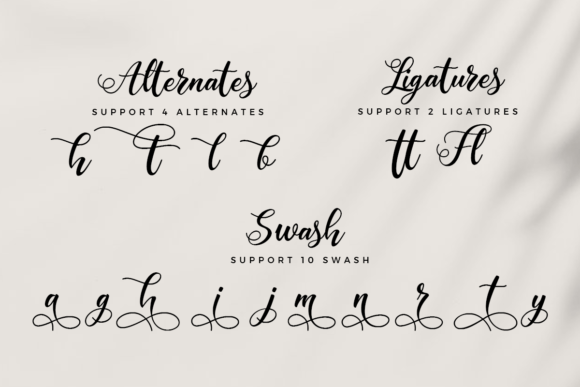 Alternates
SUPPORT 4 ALTERNATES
h t l b
Ligatures
SUPPORT 2 LIGATURES
tt Fl
Swash
SUPPORT 10 SWASH
a g h i j m n r t y